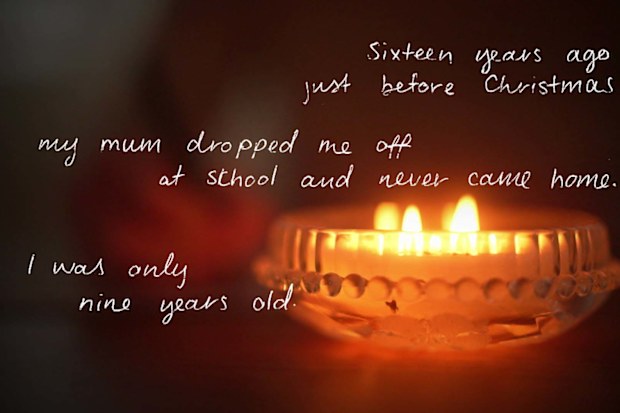 Sixteen years ago
just before Christmas
my mum dropped me off
at school and never came home.
I was only
nine years old.